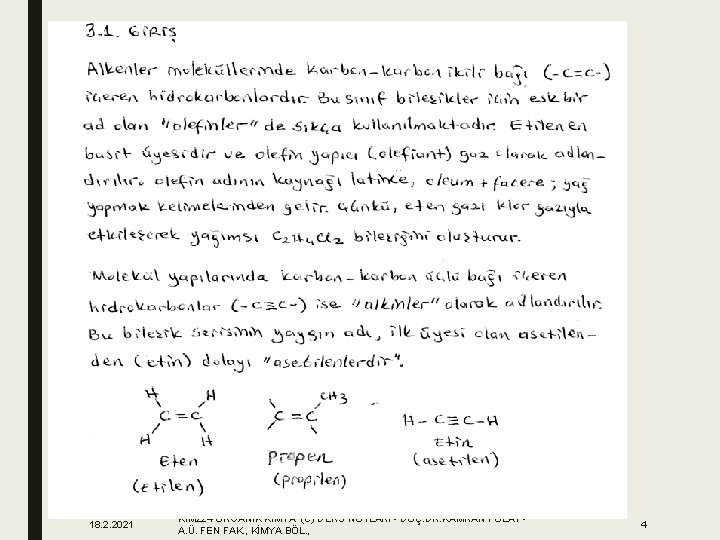 3.1. GİRİŞ
Alkenler moleküllerinde karbon-karbon ikili bağı (-C=C-)
içeren hidrokarbonlardır. Bu sınıf bileşikler için eski bir
ad olan "olefinler" de sıkça kullanılmaktadır. Etilen en
basit üyesidir ve olefin yapıcı (olefiant) gaz olarak adlan-
dırılır. Olefin adının kaynağı latince, oleum + facere; yağ
yapmak kelimelerinden gelir. Çünkü, eten gazı klor gazıyla
etkileşerek yağımsı C2H4Cl2 bileşiğini oluşturur.
Molekül yapılarında karbon-karbon üçlü bağı içeren
hidrokarbonlar (-C≡C-) ise "alkinler" olarak adlandırılır.
Bu bileşik serisinin yaygın adı, ilk üyesi olan asetilen-
den (etin) dolayı "asetilenlerdir".
H H CH3
C=C C=C H-C≡C-H
H H
Eten Propen Etin
(Etilen) (propilen) (asetilen)
18.2.2021
KİM224 ORGANİK KİMYA (C) DERS NOTLARI - DOÇ.DR.KAMRAN POLAT -
A.Ü. FEN FAK., KİMYA BÖL.,
4